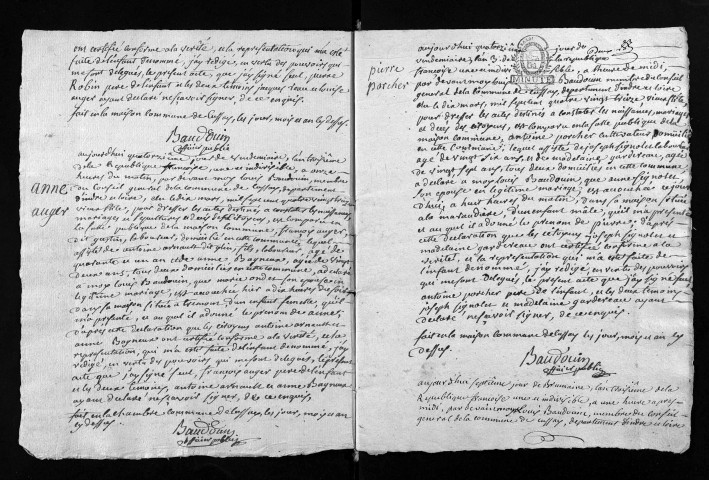 ont certifié conforme a la verité, et la representation qui m'a esté
faite de l'enfant denommé, j'ay redigé, en vertu des pouvoirs qui
me sont delegués, le present acte, que j'ay signé seul, pierre
Robin pere de l'enfant et les deux temoins jacques
auger ayant declaré ne sçavoir signer, de ce enquis.
fait en la maison commune de Cussay, les jour, mois et an cy dessus.
Baudouin
officier public
anne
auger
aujourd'hui quatorzieme jour de vendemiaire, l'an troisieme
de la Republique françoise, une et indivisible, a onze
heures du matin, par devant moy Louis Baudouin, membre
du conseil general de la commune de Cussay, departement
d'indre et loire, elu la dix mars, mil sept cent quatre vingt treize
vieux stile, pour dresser les actes destinés a constater les naissances,
mariages et deces des citoyens, est comparu en
la salle publique de la maison commune, françois auger,
laboureur, domicilié en cette commune, lequel
assisté de antoine arnault
quarante et un an et de anne Bagneux, agée de vingt
deux ans, tous deux domiciliés en cette commune, a declaré
a moy Louis Baudouin, que marie
legitime mariage, est accouchée hier a dix heures
dans sa maison d'un enfant femelle, qu'il
m'a presenté, et au quel il a donné le prenom de anne,
d'apres cette declaration que les citoyens antoine arnault et
anne Bagneux ont certifié conforme a la verité, et la
representation, qui m'a esté faite de l'enfant denommé, j'ay
redigé, en vertu des pouvoirs qui me sont delegués, le present
acte que j'ay signé seul, françois auger pere de l'enfant
et les deux temoins, antoine arnault et anne Bagneux
ayant declaré ne sçavoir signer, de ce enquis,
fait en la chambre commune de Cussay, les jour, mois et an
cy dessus.
Baudouin
officier public
pierre
porcher
aujourd'hui quatorzieme jour de
vendemiaire, l'an 3 de la republique
françoise une et indivisible, a heure de midi,
par devant moy Louis Baudouin membre du conseil
general de la Commune de Cussay, departement d'indre et loire
elu la dix mars, mil sept cent quatre vingt treize vieux stile,
pour dresser les actes destinés a constater les naissances, mariages
et deces des citoyens, est comparu en la salle publique de la
maison commune, antoine porcher cultivateur domicilié
en cette commune, lequel assisté de joseph signolet laboureur
agé de vingt six ans, et de madelaine gardereau, agée
de vingt sept ans, tous deux domiciliés en cette commune
a declaré a moy Louis Baudouin, que anne signolet,
son epouse en legitime mariage, est accouchée ce jour
d'hui, a huit heures du matin, dans sa maison
a la maraudiere, d'un enfant mâle, qu'il m'a presenté
et au quel il a donné le prenom de pierre, d'apres
cette declaration que les citoyens joseph signolet et
madelaine gardereau ont certifié conforme a la
verité, et la representation qui m'a esté faite de
l'enfant denommé, j'ay redigé, en vertu des pouvoirs
qui me sont delegués, le present acte que j'ay signé seul
antoine porcher pere de l'enfant, et les deux temoins,
joseph signolet et madelaine gardereau ayant
declaré ne sçavoir signer, de ce enquis.
fait en la maison commune de Cussay les jour, mois et an cy
dessus.
Baudouin
officier public
aujourd'hui septieme jour de brumaire, l'an troisieme de la
Republique françoise une et indivisible, a une heure apres
midi, par devant moy Louis Baudouin, membre du conseil
general de la commune de Cussay, departement d'indre et loire